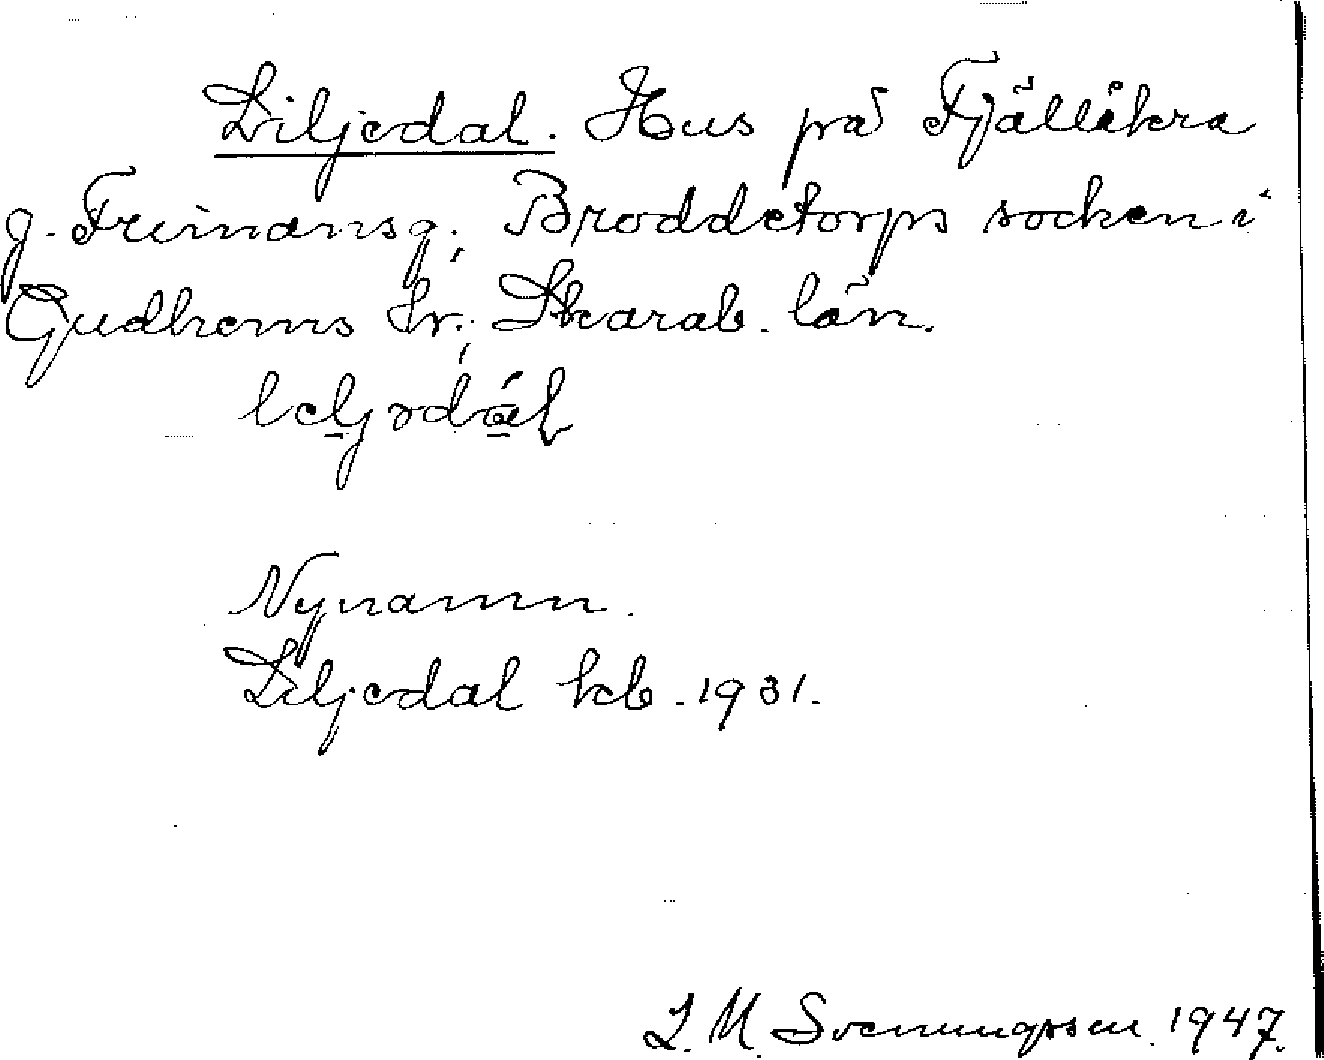 Liljedal. Hus på Fjällåkra
g. Frimansg.; Broddetorps socken i
Gudhems hr.; Skarab. län.
Nynamn.
Liljedal kb. 1931.
L. M. Svenungsson. 1947.